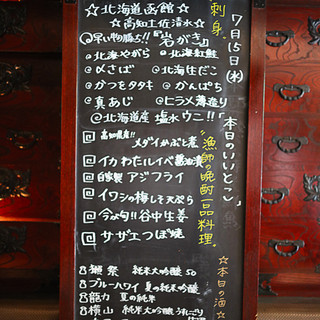 7月15日(水)
本日のいいとこ
刺身
☆北海道函館☆
☆高知土佐清水☆
◎早い物勝ち!!『岩がき』
◎北海やがら ◎北海紅鮭
◎〆さば ◎北海生だこ
◎かつをタタキ ◎かんぱち
◎真あじ ◎ヒラメ薄造り
◎北海道産 塩水ウニ!!
"漁師の晩酌一品料理"
回 高知県産!! メダイかぶと煮
回 イカわたルイベ醤油漬
回 自家製 アジフライ
回 イワシの梅しそ天ぷら
回 今が旬!!谷中生姜
回 サザエつぼ焼
☆本日の酒☆
8 獺祭 純米大吟醸 50
8 ブルーハワイ 夏の純米吟醸
8 龍力 夏の純米
8 横山 純米大吟醸 うすにごり